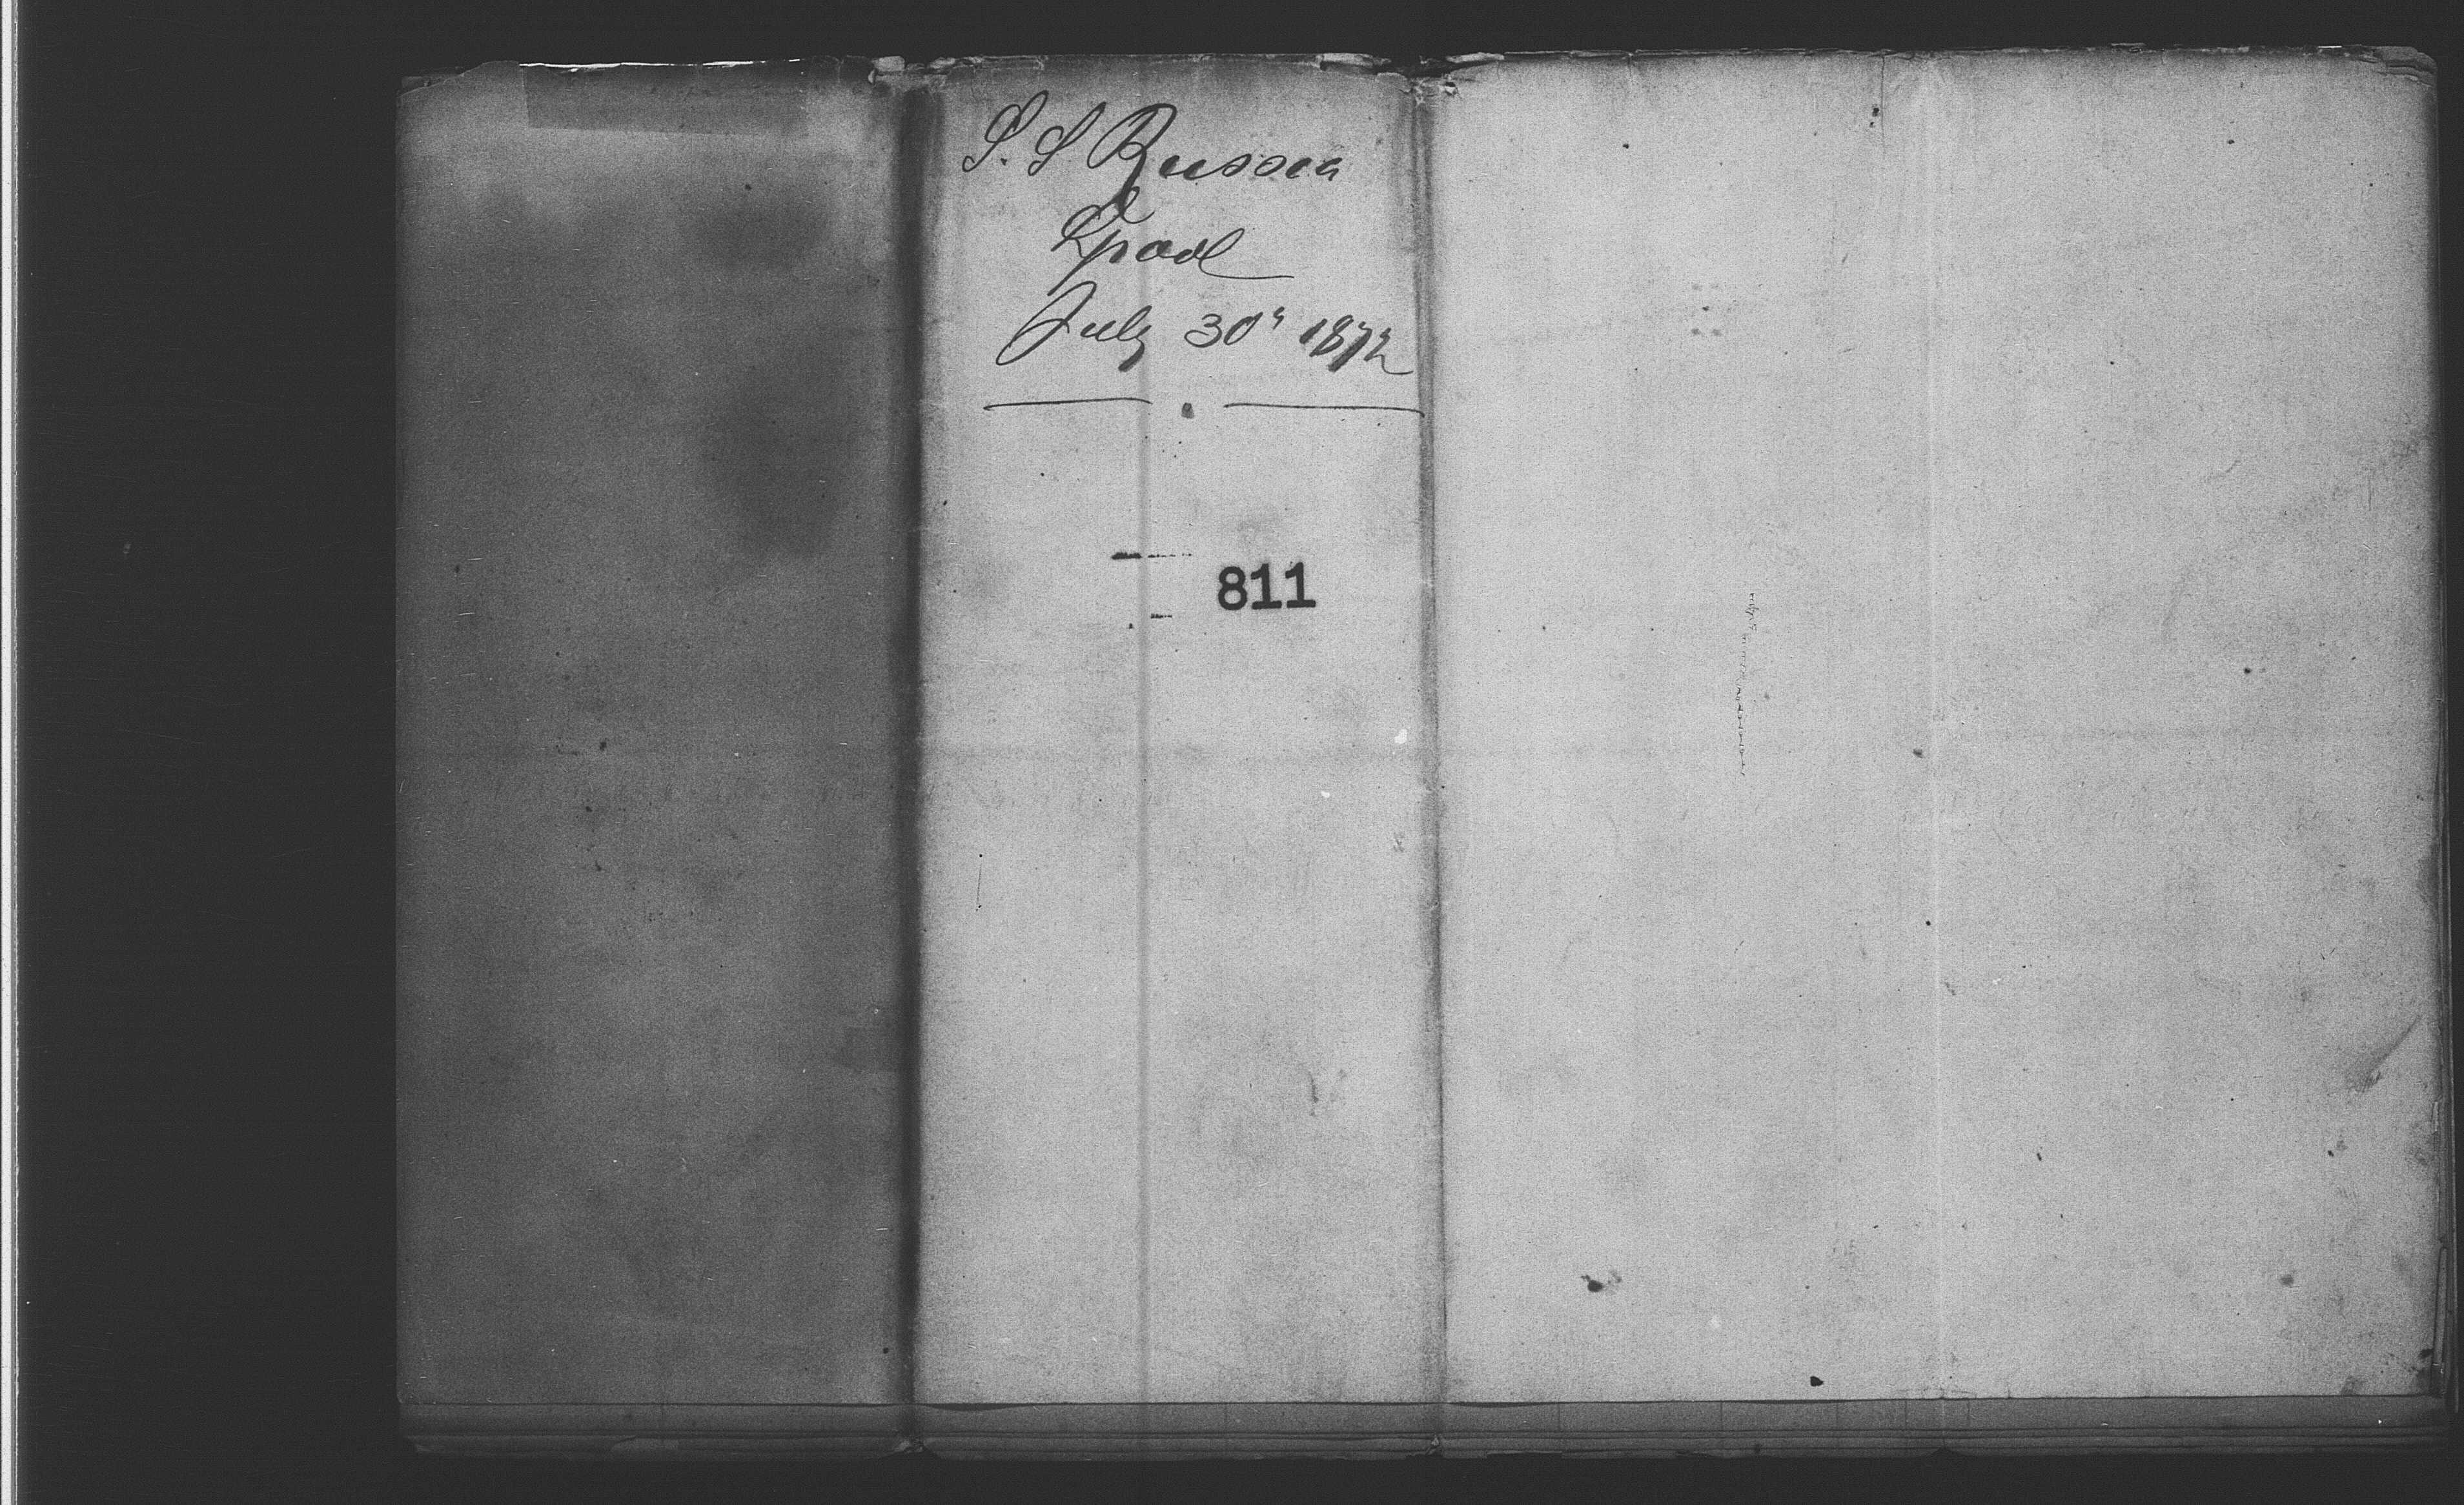 S. S Russia
Lpool
July 30" 1872
811